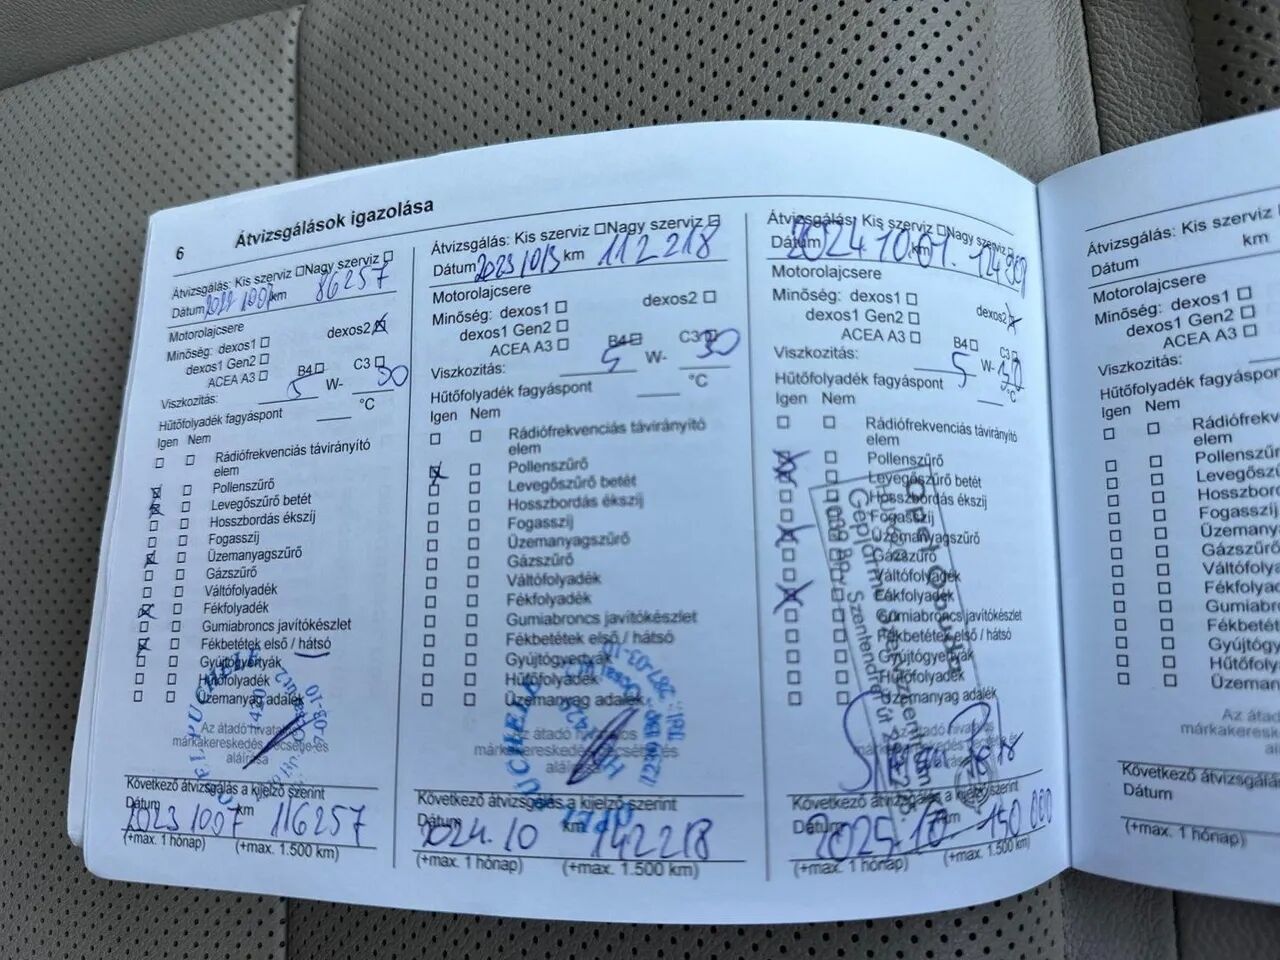 6 Átvizsgálások igazolása
Átvizsgálás: Kis szerviz Nagy szerviz
Dátum 2022 1007 km 86257
Motorolajcsere
Minőség: dexos1 dexos2
dexos1 Gen2
ACEA A3 B4 C3
Viszkozitás: 5 W- 30
Hűtőfolyadék fagyáspont °C
Igen Nem
Rádiófrekvenciás távirányító
elem
Pollenszűrő
Levegőszűrő betét
Hosszbordás ékszíj
Fogasszíj
Üzemanyagszűrő
Gázszűrő
Váltófolyadék
Fékfolyadék
Gumiabroncs javítókészlet
Fékbetétek első / hátsó
Gyújtógyertyák
Hűtőfolyadék
Üzemanyag adalék
Az átadó hivatalos
márkakereskedés pecsétje és
aláírása
Következő átvizsgálás a kijelző szerint
Dátum 2023 1007 km 116257
(+max. 1 hónap) (+max. 1.500 km)
Átvizsgálás: Kis szerviz Nagy szerviz
Dátum 2023 10/3 km 112218
Motorolajcsere
Minőség: dexos1 dexos2
dexos1 Gen2
ACEA A3 B4 C3
Viszkozitás: 5 W- 30
Hűtőfolyadék fagyáspont °C
Igen Nem
Rádiófrekvenciás távirányító
elem
Pollenszűrő
Levegőszűrő betét
Hosszbordás ékszíj
Fogasszíj
Üzemanyagszűrő
Gázszűrő
Váltófolyadék
Fékfolyadék
Gumiabroncs javítókészlet
Fékbetétek első / hátsó
Gyújtógyertyák
Hűtőfolyadék
Üzemanyag adalék
Az átadó hivatalos
márkakereskedés pecsétje és
aláírása
Következő átvizsgálás a kijelző szerint
Dátum 2024.10 km 142218
(+max. 1 hónap) (+max. 1.500 km)
Átvizsgálás: Kis szerviz Nagy szerviz
Dátum 2024 10.01. km
Motorolajcsere
Minőség: dexos1 dexos2
dexos1 Gen2
ACEA A3 C3
Viszkozitás: 5 W- 30
Hűtőfolyadék fagyáspont °C
Igen Nem
Rádiófrekvenciás távirányító
elem
Pollenszűrő
Levegőszűrő betét
Hosszbordás ékszíj
Fogasszíj
Üzemanyagszűrő
Gázszűrő
Váltófolyadék
Fékfolyadék
Gumiabroncs javítókészlet
Fékbetétek első / hátsó
Gyújtógyertyák
Hűtőfolyadék
Üzemanyag adalék
Az átadó hivatalos
márkakereskedés pecsétje és
aláírása
Következő átvizsgálás a kijelző szerint
Dátum 2025.10 km 150 000
(+max. 1 hónap) (+max. 1.500 km)
Átvizsgálás: Kis szerviz
Dátum km
Motorolajcsere
Minőség: dexos1
dexos1 Gen2
ACEA A3
Viszkozitás:
Hűtőfolyadék fagyáspont
Igen Nem
Rádiófrekve
elem
Pollenszűr
Levegősz
Hosszbord
Fogasszíj
Üzemanya
Gázszűrő
Váltófolya
Fékfolyad
Gumiabro
Fékbetét
Gyújtógy
Hűtőfoly
Üzeman
Az átad
márkakeres
Következő átvizsgálá
Dátum
(+max. 1 hónap)